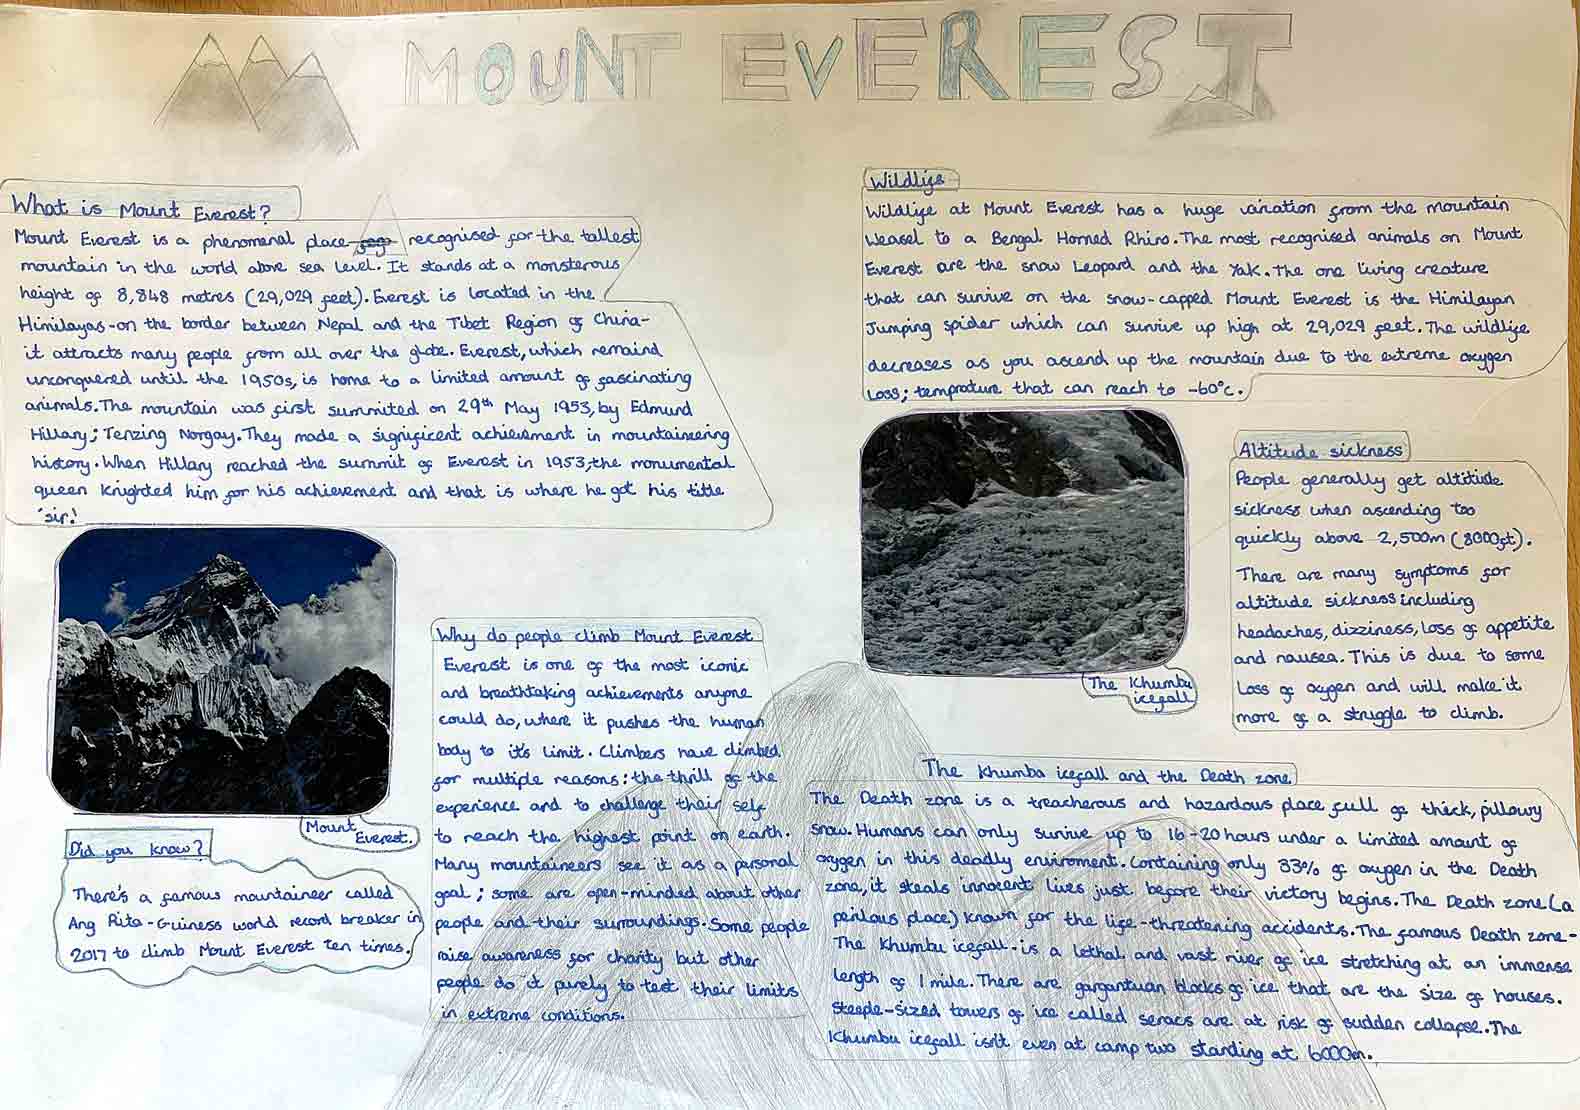 MOUNT EVEREST
What is Mount Everest?
Mount Everest is a phenomenal place recognised for the tallest
mountain in the world above sea level. It stands at a monsterous
height of 8,848 metres (29,029 feet). Everest is located in the
Himilayas-on the border between Nepal and the Tibet Region of China-
it attracts many people from all over the globe. Everest, which remaind
unconquered until the 1950s, is home to a limited amount of fascinating
animals. The mountain was first summited on 29th May 1953, by Edmund
Hillary; Tenzing Norgay. They made a significent achievement in mountaineering
history. When Hillary reached the summit of Everest in 1953, the monumental
queen knighted him for his achievement and that is where he got his title
'sir!'
Mount
Everest.
Did you know?
There's a famous mountaineer called
Ang Rita-Guiness world record breaker in
2017 to climb Mount Everest ten times.
Why do people climb Mount Everest
Everest is one of the most iconic
and breathtaking achievements anyone
could do, where it pushes the human
body to it's limit. Climbers have climbed
for multiple reasons: the thrill of the
experience and to challenge their self
to reach the highest point on earth.
Many mountaineers see it as a personal
goal; some are open-minded about other
people and their surroundings. Some people
raise awareness for charity but other
people do it purely to test their limits
in extreme conditions.
Wildlife
Wildlife at Mount Everest has a huge variation from the mountain
Weasel to a Bengal Horned Rhino. The most recognised animals on Mount
Everest are the snow Leopard and the Yak. The one living creature
that can survive on the snow-capped Mount Everest is the Himilayan
Jumping spider which can survive up high at 29,029 feet. The wildlife
decreases as you ascend up the mountain due to the extreme oxygen
Loss; temprature that can reach to -60°c.
The Khumbu
icefall
Altitude sickness
People generally get altitude
sickness when ascending too
quickly above 2,500m (8000ft).
There are many symptoms for
altitude sickness including
headaches, dizziness, loss of appetite
and nausea. This is due to some
Loss of oxygen and will make it
more of a struggle to climb.
The Khumba icefall and the Death zone
The Death zone is a treacherous and hazardous place full of thick, pillowy
snow. Humans can only survive up to 16-20 hours under a limited amount of
oxygen in this deadly enviroment. Containing only 33% of oxygen in the Death
zone, it steals innocent lives just before their victory begins. The Death zone (a
perilous place) known for the life-threatening accidents. The famous Death zone-
The Khumbu icefall-is a lethal and vast river of ice stretching at an immense
length of 1 mile. There are gargantuan blocks of ice that are the size of houses.
Steeple-sized towers of ice called seracs are at risk of sudden collapse. The
Khumbu icefall isn't even at camp two standing at 6000m.